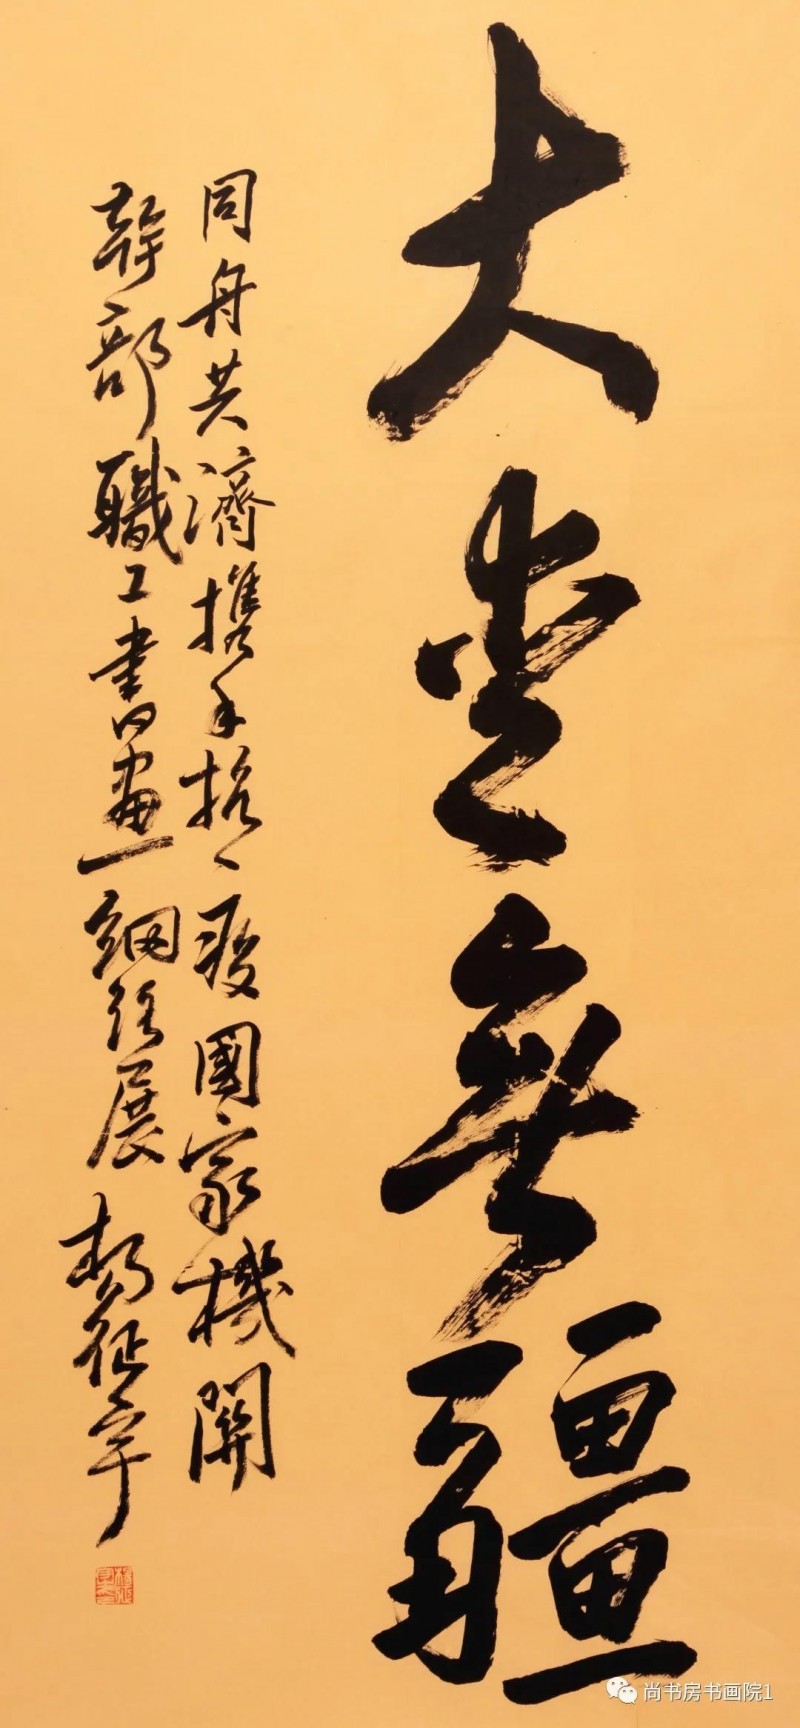 大爱無疆
同舟共濟携手抗疫國家機關
幹部職工書畫網絡展 楊征宇
尚书房书画院1